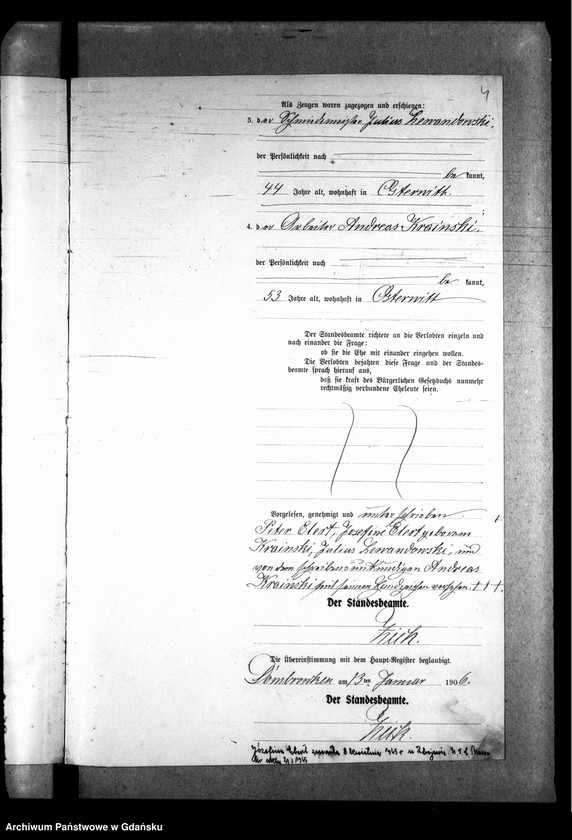 4
Als Zeugen waren zugezogen und erschienen:
3. der Schmiedemeister Julius Lewandowski,
der Persönlichkeit nach
be kannt,
44 Jahre alt, wohnhaft in Osterwitt.
4. der Arbeiter Andreas Krainski.
der Persönlichkeit nach
be kannt,
53 Jahre alt, wohnhaft in Osterwitt
Der Standesbeamte richtete an die Verlobten einzeln und
nach einander die Frage:
ob sie die Ehe mit einander eingehen wollen.
Die Verlobten bejahten diese Frage und der Standes-
beamte sprach hierauf aus,
daß sie kraft des Bürgerlichen Gesetzbuchs nunmehr
rechtmäßig verbundene Eheleute seien.
Vorgelesen, genehmigt und unterschrieben
Peter Elert, Josefine Elert geborene
Krainski, Julius Lewandowski, und
von dem schreibensunkundigen Andreas
Krainski mit seinem Handzeichen versehen +++.
Der Standesbeamte.
Die Übereinstimmung mit dem Haupt-Register beglaubigt.
Dombrowken am 13ten Januar 1906.
Der Standesbeamte.
Józefina Elert zmarła 8 kwietnia 1945 r. w
Archiwum Państwowe w Gdańsku